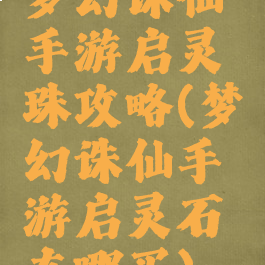 梦幻诛仙
手游启灵
珠攻略(梦
幻诛仙手
游启灵石
去哪买)